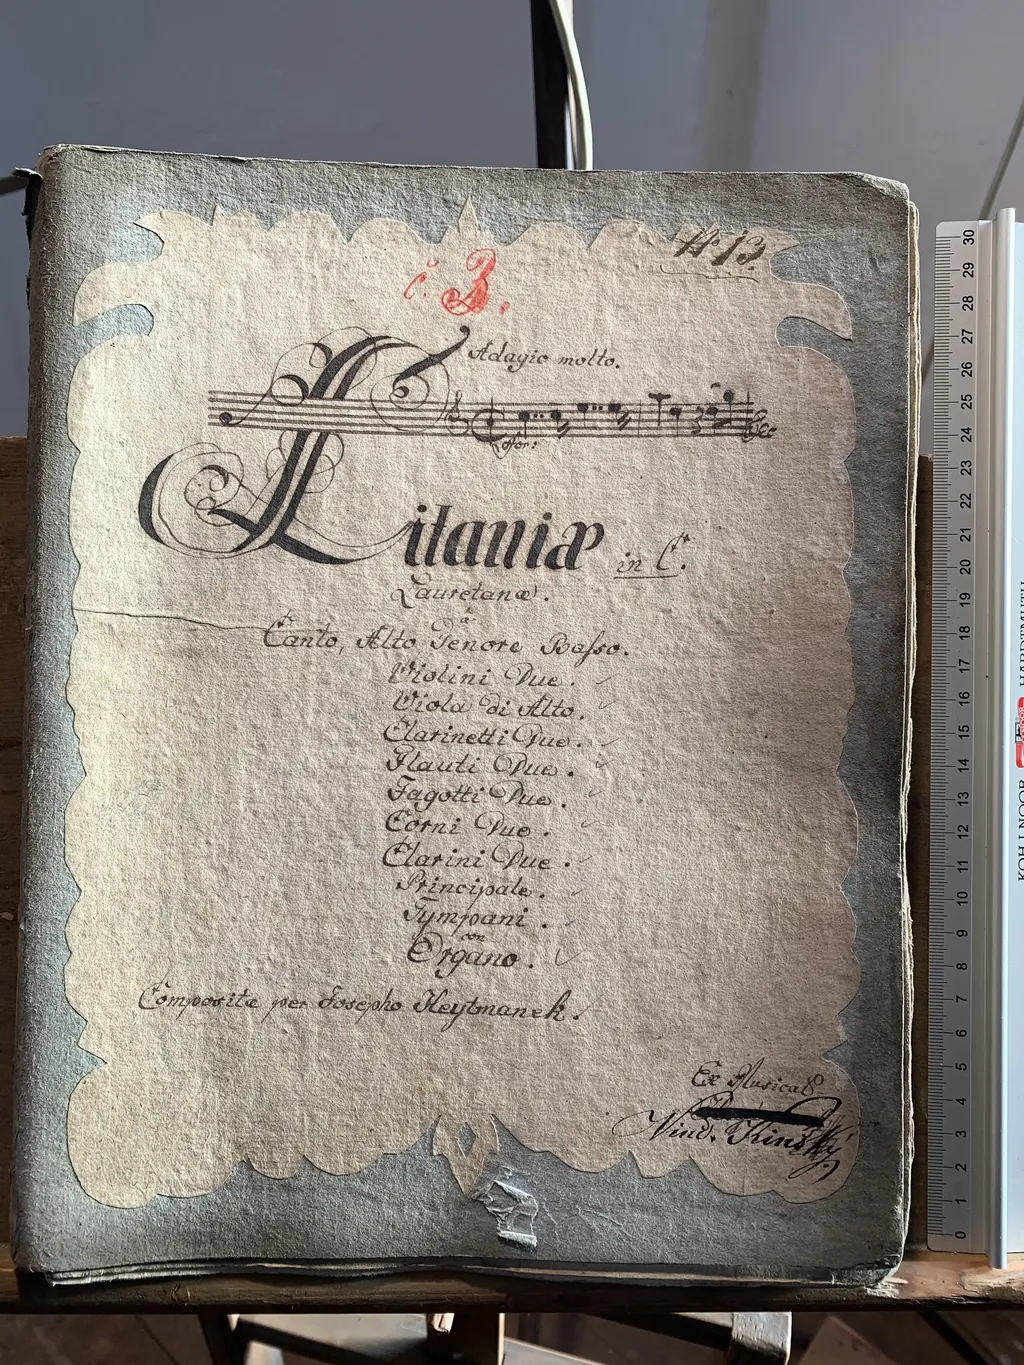 č. 3.
# 13.
Adagio molto.
Litaniæ in C.
Lauretanæ.
à
Canto, Alto Tenore Basso.
Violini Due.
Viola di Alto.
Clarinetti Due.
Flauti Due.
Fagotti Due.
Corni Due.
Clarini Due.
Principale.
Tympani.
con
Organo.
Composita per Josepho Heytmanek.
Ex
Kinský
30
29
28
27
26
25
24
23
22
21
20
19
18
17
16
15
14
13
12
11
10
9
8
7
6
5
4
3
2
1
0
KOH-I-NOOR HARDTMUTH